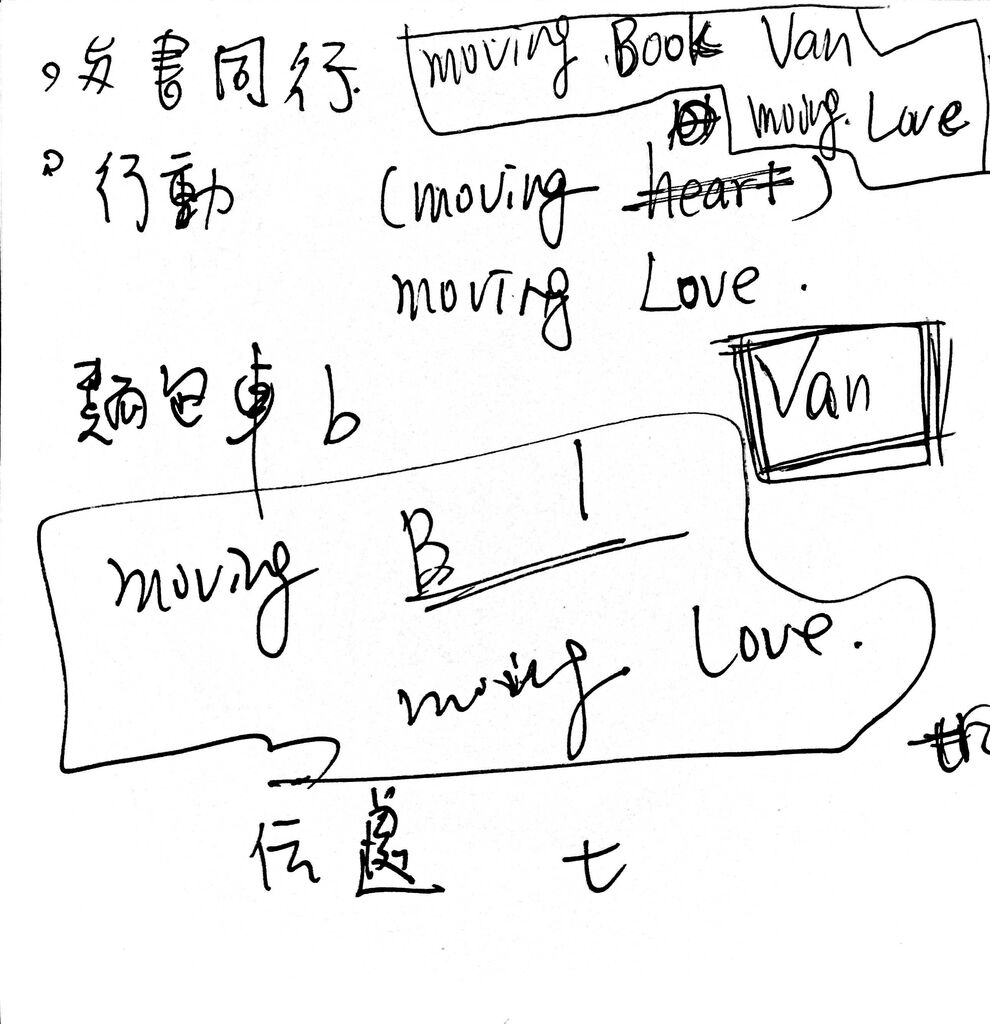 友書同行. moving Book Van
moving. Love
行動 (moving heart)
moving Love.
麵包車 b
Van
moving B
moving Love.
伝遞 t